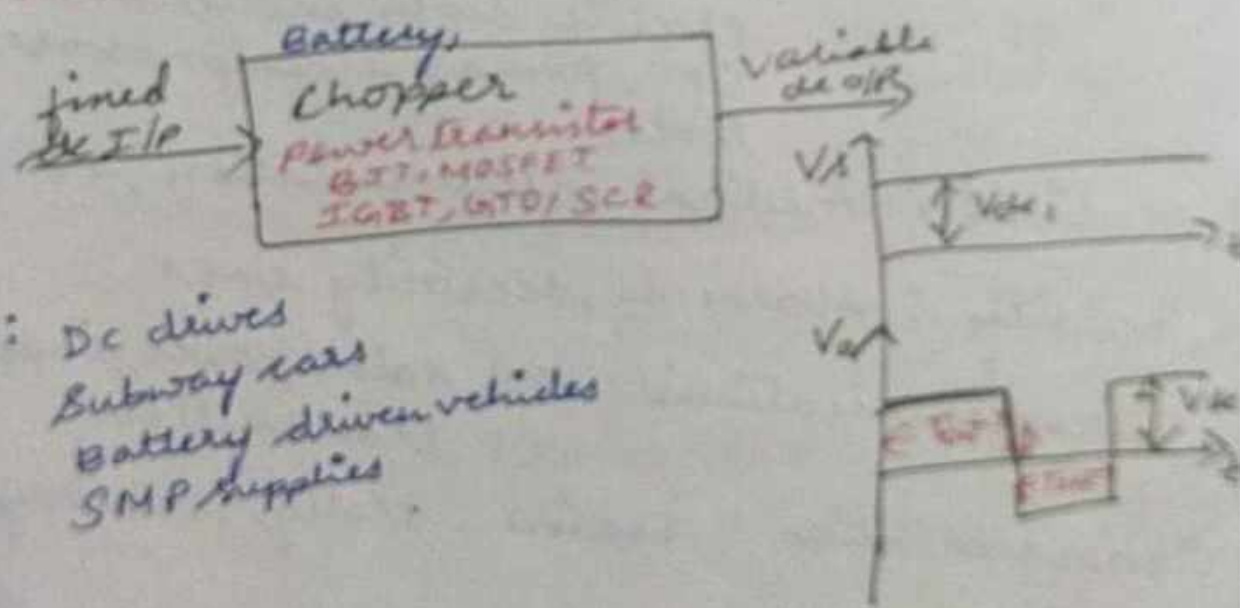 Battery,
fixed
dc I/P
Chopper
Power transistor
BJT, MOSFET
IGBT, GTO, SCR
variable
dc O/P
Vs
Vdc
t
: Dc drives
Subway cars
Battery driven vehicles
SMP supplies
Vo
Ton
Toff
Vdc
t